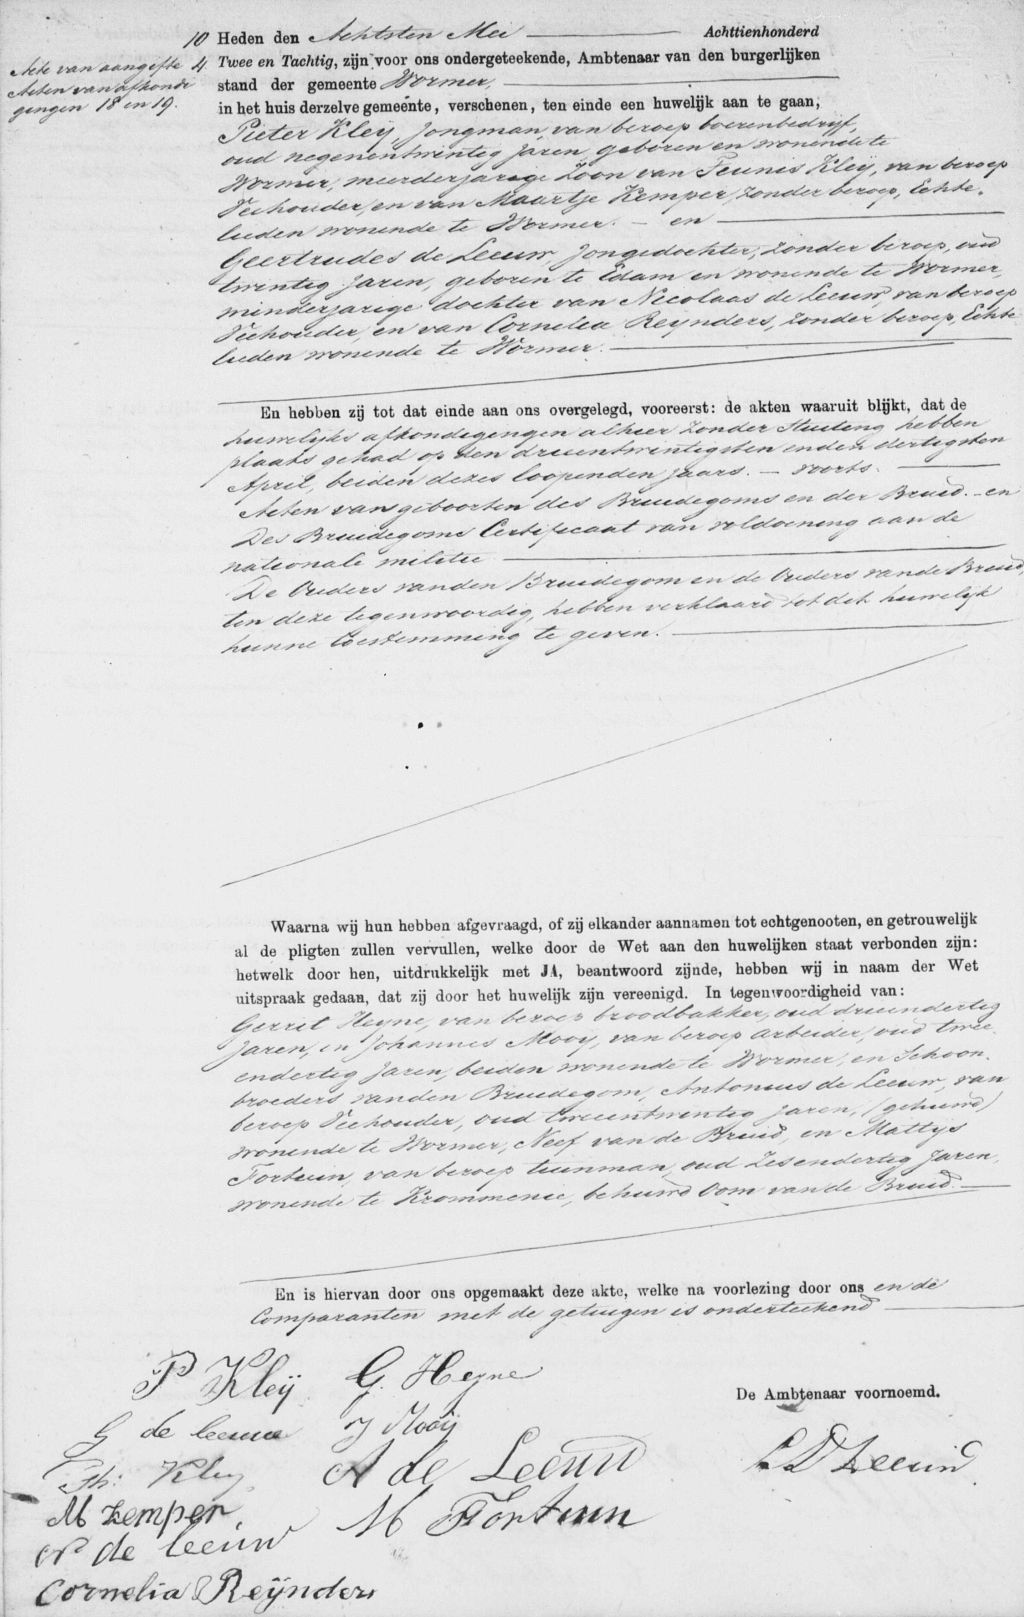 10
Akte van aangifte 4.
Acten van afkondi
gingen 18 en 19.
Heden den Achtsten Mei Achttienhonderd
Twee en Tachtig, zijn voor ons ondergeteekende, Ambtenaar van den burgerlijken
stand der gemeente Wormer,
in het huis derzelve gemeente, verschenen, ten einde een huwelijk aan te gaan;
Pieter Kleij, Jongman, van beroep boerenbedrijf,
oud negenentwintig jaren, geboren en wonende te
Wormer, meerderjarige Zoon van Teunis Kleij, van beroep
Veehouder, en van Maartje Kemper, zonder beroep, Echte-
lieden wonende te Wormer. – en
Geertrudes de Leeuw, Jongedochter, zonder beroep, oud
twintig Jaren, geboren te Edam en wonende te Wormer,
minderjarige dochter van Nicolaas de Leeuw, van beroep
Veehouder, en van Cornelia Reynders, zonder beroep, Echte-
lieden wonende te Wormer.
En hebben zij tot dat einde aan ons overgelegd, vooreerst: de akten waaruit blijkt, dat de
huwelijks afkondigingen alhier zonder Stuiting hebben
plaats gehad op den drieentwintigsten en den dertigsten
April, beiden dezes loopenden jaars. – voorts.
Acten van geboorten des Bruidegoms en der Bruid. – en
Des Bruidegoms Certificaat van voldoening aan de
nationale militie
De Ouders van den Bruidegom en de Ouders van de Bruid,
ten deze tegenwoordig, hebben verklaard tot dit huwelijk
hunne toestemming te geven.
Waarna wij hun hebben afgevraagd, of zij elkander aannamen tot echtgenooten, en getrouwelijk
al de pligten zullen vervullen, welke door de Wet aan den huwelijken staat verbonden zijn:
hetwelk door hen, uitdrukkelijk met JA, beantwoord zijnde, hebben wij in naam der Wet
uitspraak gedaan, dat zij door het huwelijk zijn vereenigd. In tegenwoordigheid van:
Gerrit Heyne, van beroep broodbakker, oud drieendertig
Jaren, en Johannes Mooy, van beroep Arbeider, oud twee-
endertig Jaren, beiden wonende te Wormer, en Schoon-
broeders van den Bruidegom, Antonius de Leeuw, van
beroep Veehouder, oud tweeentwintig jaren, (gehuwd)
wonende te Wormer, Neef van de Bruid, en Mattys
Fortuin, van beroep tuinman, oud Zesendertig Jaren,
wonende te Krommenie, behuwd Oom van de Bruid.
En is hiervan door ons opgemaakt deze akte, welke na voorlezing door ons en de
Comparanten met de getuigen is onderteekend
P Kleij
G. Heyne
De Ambtenaar voornoemd.
G de leeuw
J Mooij
Th: Kley
A de Leeuw
M kemper.
M Fortuin
N de leeuw
Cornelia Reijnders